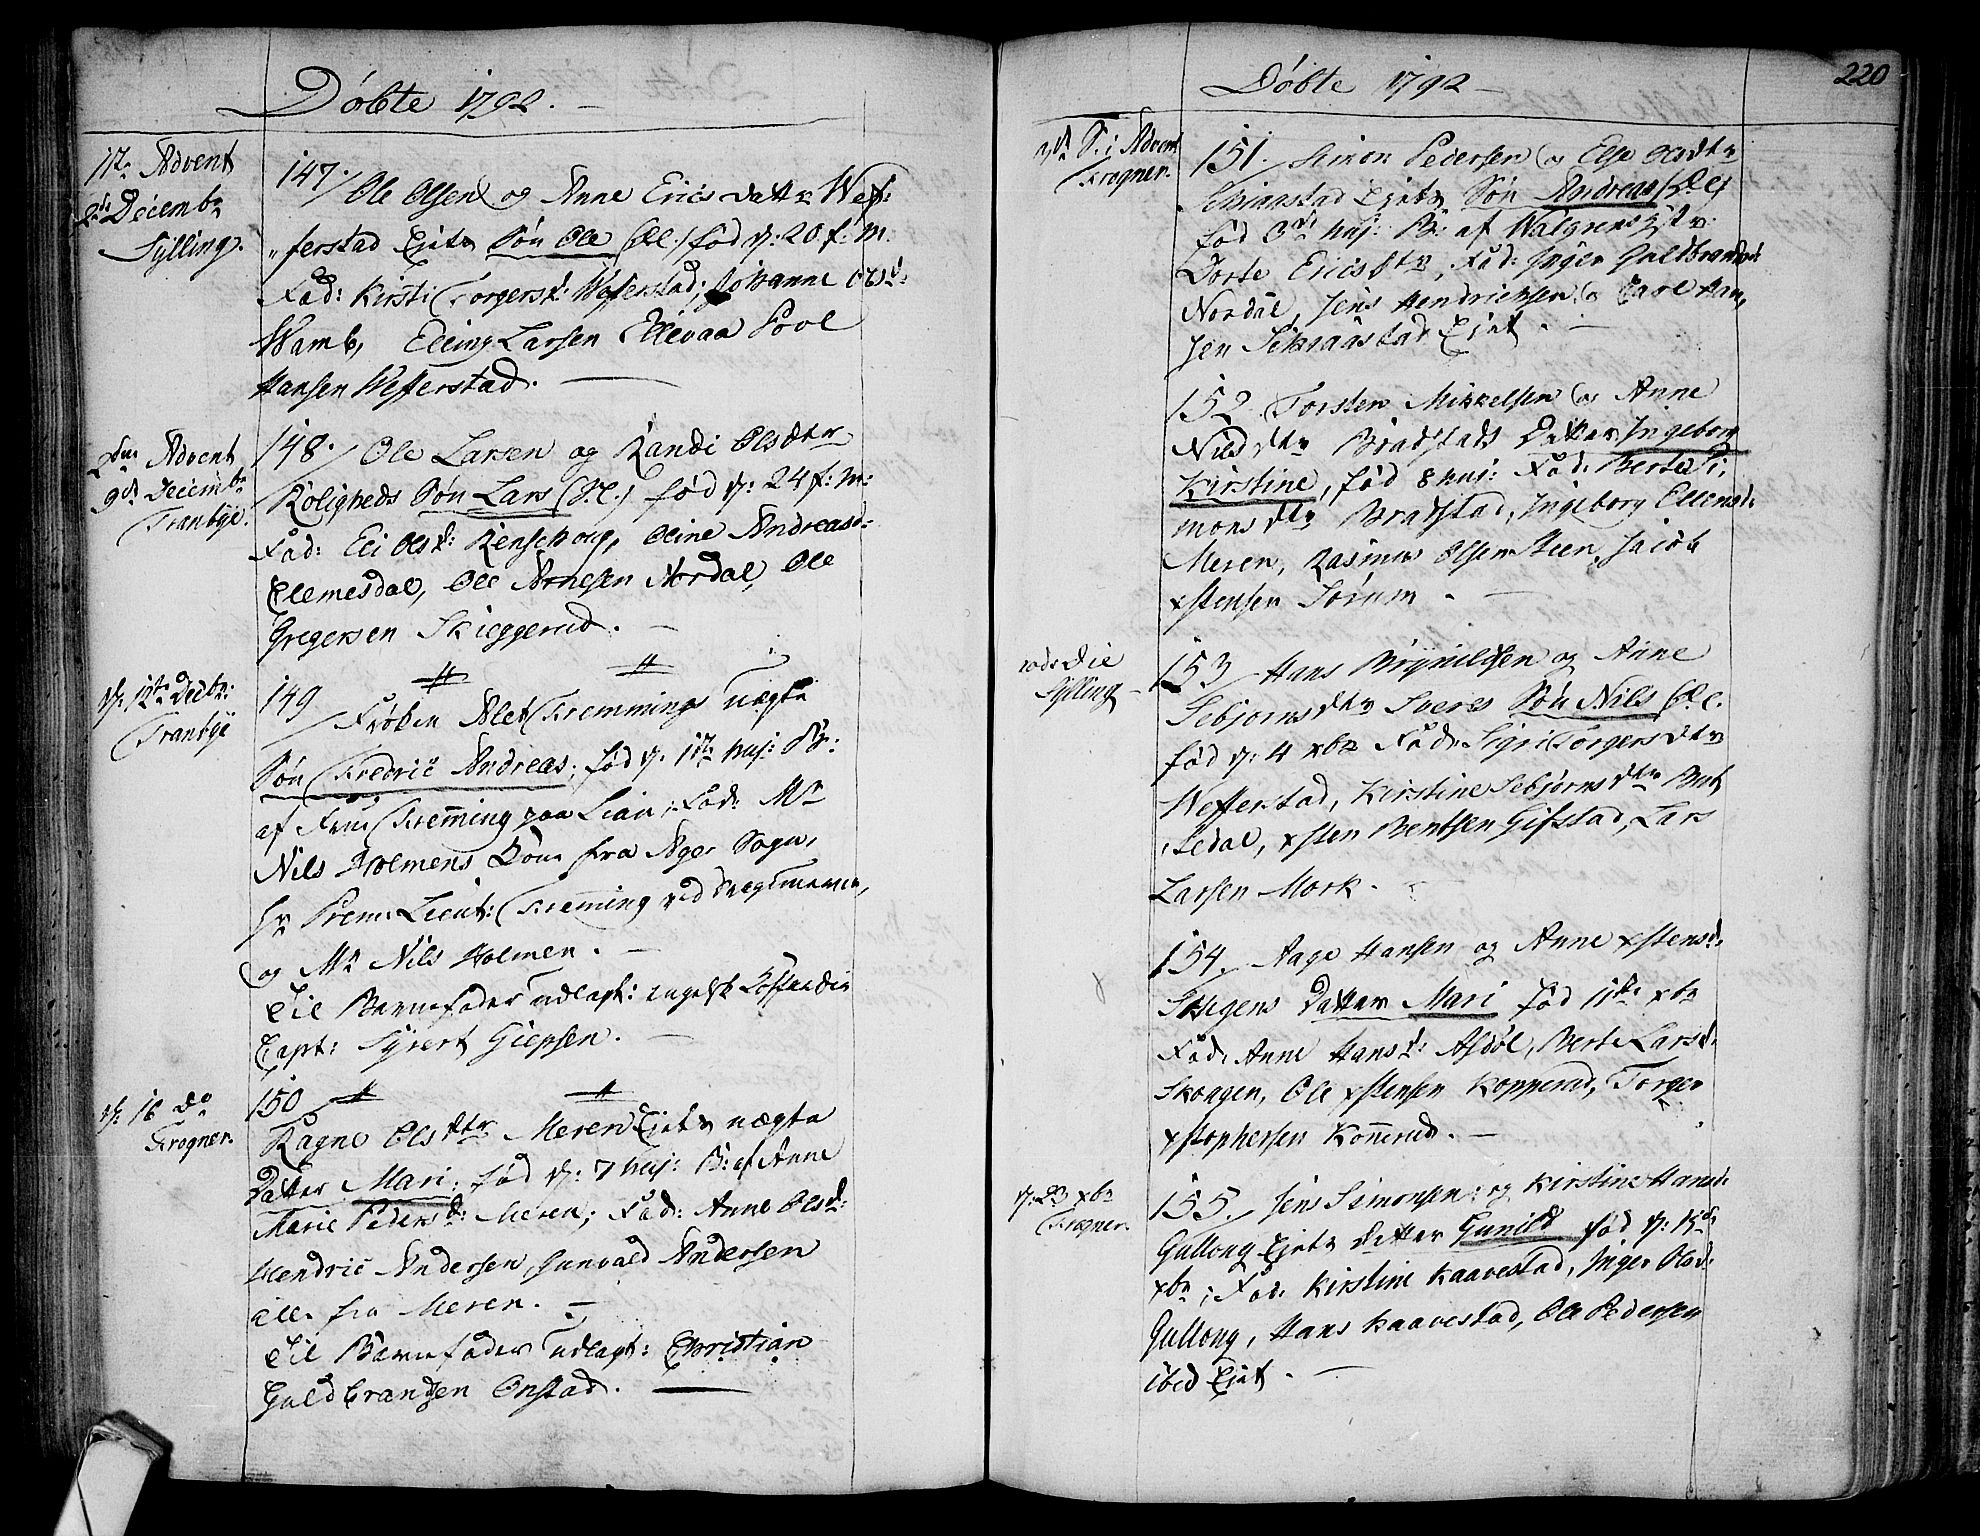 Döbte 1792. —
1te Advent
2de Decembr
Sylling.
147. Ole Olsen og Anne Erics datter Wef:
„ferstad Ejets Søn Ole (Æ:) fød d: 20 f: M:
Fad: Kirsti Torgersd: Weferstad, Johanne Olsd:
Wamb, Elling Larsen Ellevaa Povl
Hansen Wefferstad. —
2den Advent
9de Decembr
Tranbye.
148. Ole Larsen og Randi Olsdtr
Roligheds Søn Lars (Æ.) fød d: 24 f: M:
Fad: Eli Olsd: Renskoug, Oline Andreasd:
Elemesdal, Ole Arnesen Nordal, Ole
Gregersen Skieggerud. —
d: 12te Decbr:
Tranbye
149 Frøken Alet Fremmings uægte
Søn Fredric Andreas, fød d. 1te huj: B:
af Frue Fremming paa Lian; Fad: Mr
Nils Holmens Kone fra Ager Sogn,
Hr Prem: Lieut: Fremming ved
og Mr Nils Holmen. —
Til Barnefader udlagt: engelsk
Capt: Syvert Giepsen. —
d: 16 do
Frogner.
150
Ragne Olsdtr Meren Ejets uægte
Datter Mari, fød d: 7 huj: B: af Anne
Marie Pedersd: Meren; Fad: Anne Olsd:
Hendric Andersen, Gunvald Andersen
alle fra Meren. —
Til Barnefader udlagt: Christian
Guldbrandsen Onstad. —
Döbte 1792 —
220
3de S. i Advent
Frogner.
151. Simon Pedersen og Else Olsdtr
Schiaastad Ejets Søn Andreas (Æ)
fød 3de huj: B: af Walgrens Hstr:
Dorte Ericsdtr, Fad: Inger Guldbrandsd:
Nordal, Jens Hendrichsen og Carl Han,
sen Schiaastad Ejet. —
152. Torsten Mikkelsen og Anne
Nilsdtr Bradstads Datter Ingeborg
Kirstine, fød 8 huj: Fad: Berte Si,
monsdtr Bradstad, Ingeborg Ellensd:
Meren, Rasmus Olsen Steen, Jacob
xstensen Sørum. —
eods die
Sylling
153 Hans Brynildsen og Anne
Sebjørnsdtr Sveres Søn Nils (Æ.
fød d: 4 xbr Fad: Sigri Torgersdtr
Wefferstad, Kirstine Sebjørnsdtr But,
tedal, xsten Bentsen Gifstad, Lars
Larsen Mork. —
154. Aage Hansen og Anne xstensd:
Skugens Datter Mari fød 11te xbr
Fad: Anne Hansd: Asdøl, Berte Larsd:
Skougen, Ole xstensen Kopperud, Torger
xstophersen Komerud. —
d: 23 xbr
Frogner.
155. Jens Simonsen og Kirstine Hansd:
Gullong Ejets Datter Gunild fød d: 15de
xbr; Fad: Kirstine Kaavestad, Inger Olsd:
Gullong, Hans Kaavestad, Ole Pedersen
ibid Ejet. —